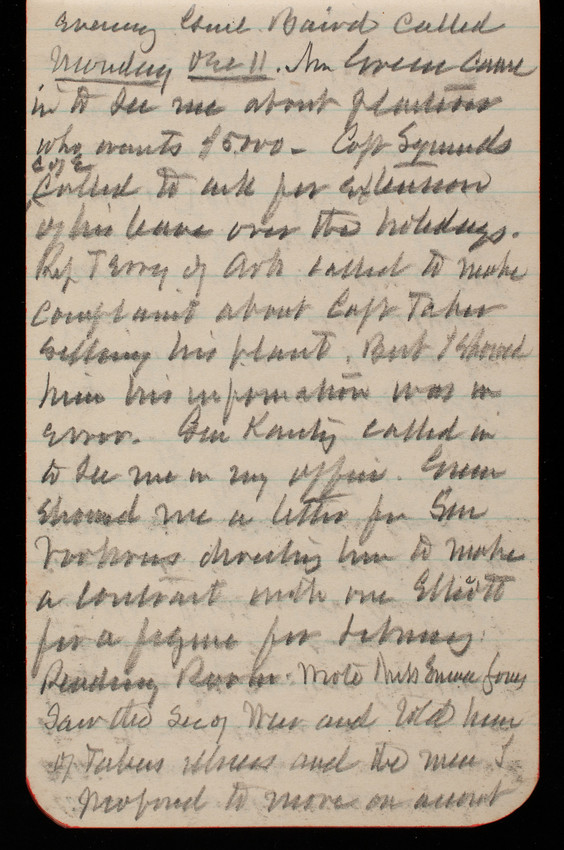 Evening Genl Baird called
Monday Dec 11. Mr Green came
in to see me about
who wants $5000 - Capt Symonds
C of E
called to ask for extension
of his leave over the holidays.
Rep Terry of Ark called to make
complaint about Capt Taber
selling his plant. But I showed
him his information was in
error. Gen Kautz called in
to see me in my office. Green
showed me a letter from Gen
directing him to make
a contract with one Elliott
for a figure for Library
Reading Room. Wrote Miss Emma Jones
Saw the Sec of War and told him
of Tabers illness and the men I
proposed to move on account